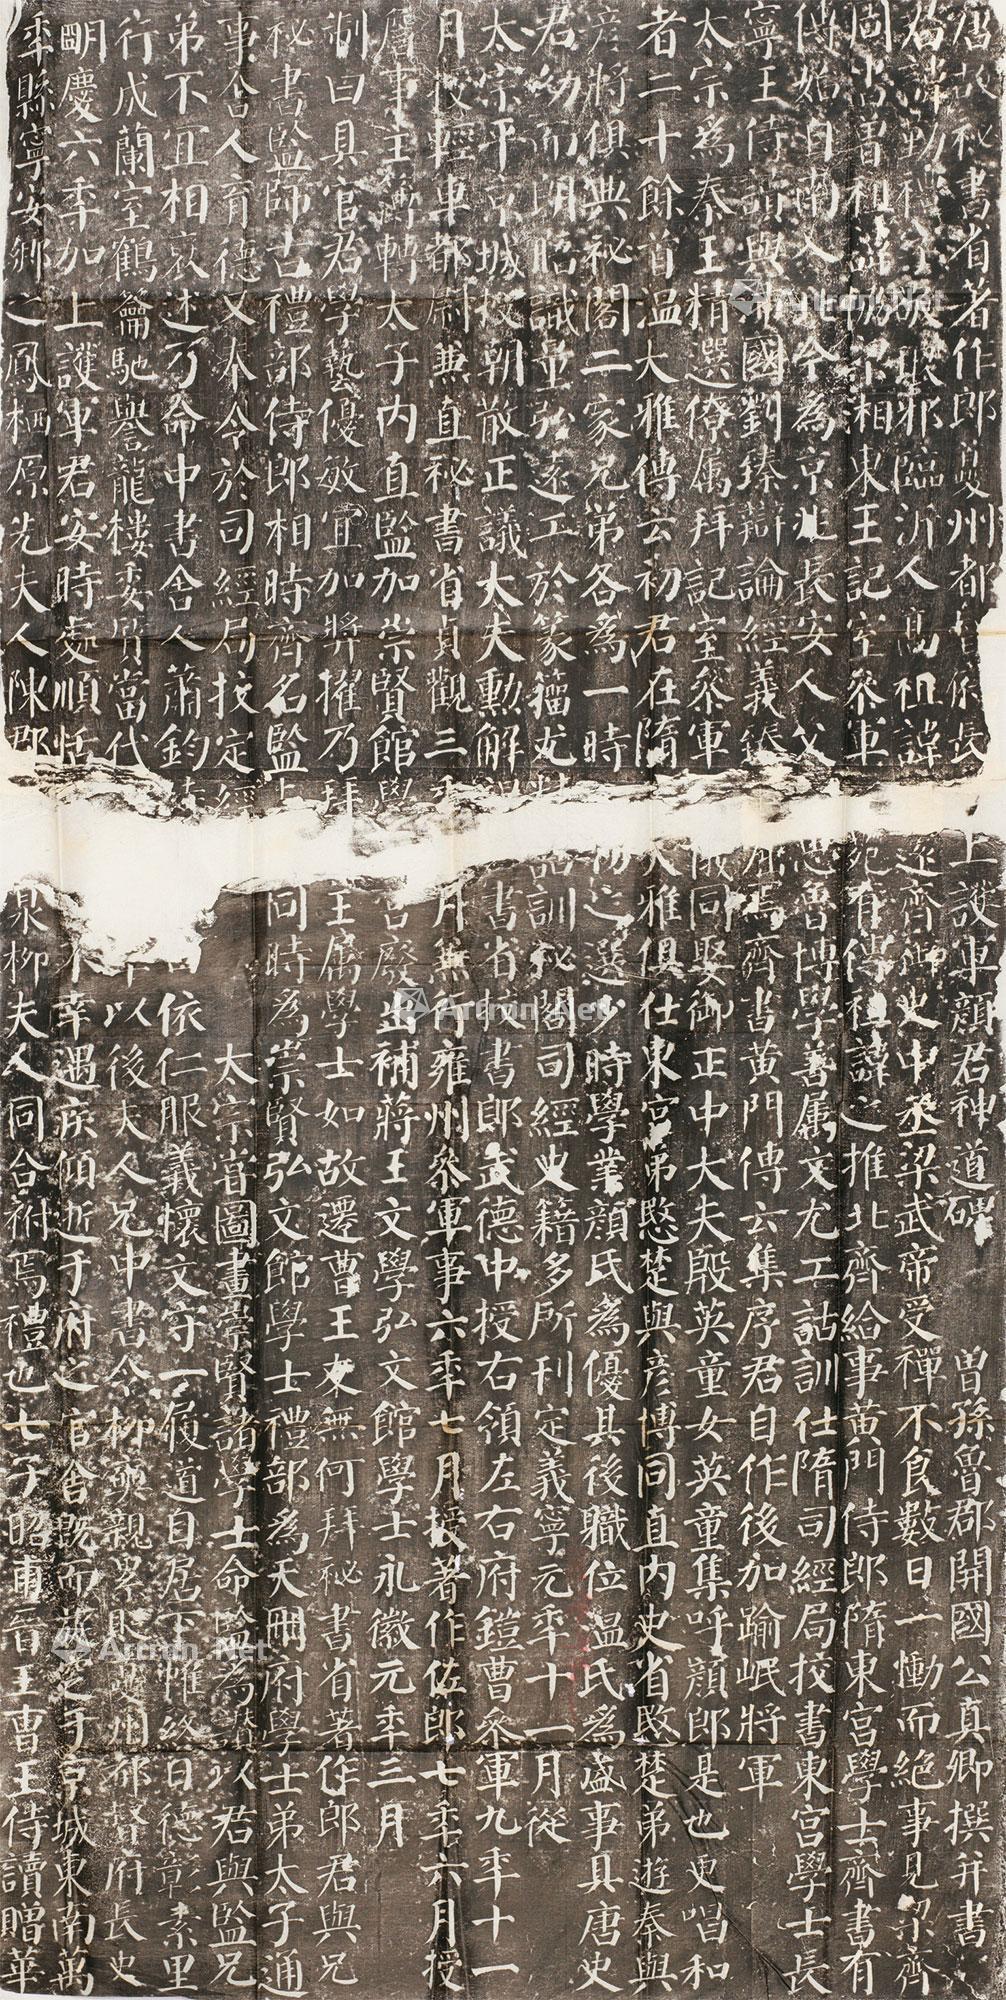 唐故秘書省著作郎夔州都督府長上護軍顏君神道碑 曽孫魯郡開國公真卿撰并書
君諱勤禮字敬琅邪臨沂人高祖諱見逺齊御史中丞梁武帝受禪不食數日一慟而絶事見梁齊
周書曽祖諱協梁湘東王記室參軍文苑有傳祖諱之推北齊給事黄門侍郎隋東宮學士齊書有
傳始自南入北今為京兆長安人父諱思魯博學善属文尤工詁訓仕隋司經局挍書東宮學士長
寧王侍讀與沛國劉臻辯論經義臻屢屈焉齊書黄門傳云集序君自作後加踰岷將軍
太宗為秦王精選僚属拜記室參軍儀同娶御正中大夫殷英童女英童集呼顏郎是也更唱和
者二十餘首温大雅傳云初君在隋與大雅俱仕東宮弟愍楚與彦博同直内史省愍楚弟遊秦與
彦將俱典祕閣二家兄弟各為一時人物之選少時學業顏氏為優其後職位温氏為盛事具唐史
君幼而朗晤識量弘逺工於篆籀尤精詁訓秘閣司經史籍多所刊定義寧元年十一月從
太宗平京城授朝散正議大夫勳解褐秘書省挍書郎武德中授右領左右府鎧曹參軍九年十一
月授輕車都尉兼直秘書省貞觀三年六月兼行雍州參軍事六年七月授著作佐郎七年六月授
詹事主簿轉太子内直監加崇賢館學士宮廢出補蔣王文學弘文館學士永徽元年三月
制曰具官君學藝優敏宜加奬擢乃拜陳王属學士如故遷曹王友無何拜秘書省著作郎君與兄
秘書監師古禮部侍郎相時齊名監與君同時為崇賢弘文館學士禮部為天册府學士弟太子通
事舍人育德又奉令於司經局挍定經史 太宗嘗圖畫崇賢諸學士命監為讃以君與監兄
弟不宜相襃述乃命中書舍人蕭鈞 依仁服義懷文守一履道自居下帷終日德彰素里
行成蘭室鶴籥馳譽龍樓委質當代 以後夫人兄中書令柳奭親累貶夔州都督府長史
明慶六年加上護軍君安時處順恬 不幸遇疾傾逝于府之官舍既而旋窆于京城東南萬
年縣寧安郷之鳳栖原先夫人陳郡 泉柳夫人同合祔焉禮也七子昭甫晉王曹王侍讀贈華